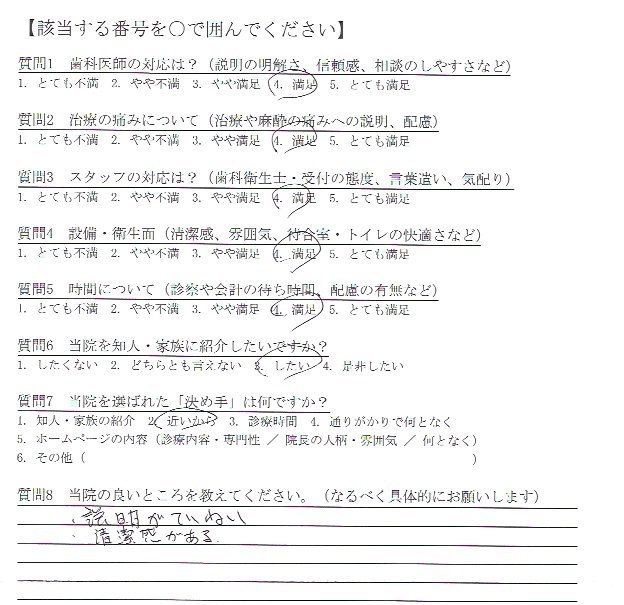 【該当する番号を○で囲んでください】
質問1　歯科医師の対応は？（説明の明解さ、信頼感、相談のしやすさなど）
1. とても不満　2. やや不満　3. やや満足　4. 満足　5. とても満足
質問2　治療の痛みについて（治療や麻酔の痛みへの説明、配慮）
1. とても不満　2. やや不満　3. やや満足　4. 満足　5. とても満足
質問3　スタッフの対応は？（歯科衛生士・受付の態度、言葉遣い、気配り）
1. とても不満　2. やや不満　3. やや満足　4. 満足　5. とても満足
質問4　設備・衛生面（清潔感、雰囲気、待合室・トイレの快適さなど）
1. とても不満　2. やや不満　3. やや満足　4. 満足　5. とても満足
質問5　時間について（診察や会計の待ち時間、配慮の有無など）
1. とても不満　2. やや不満　3. やや満足　4. 満足　5. とても満足
質問6　当院を知人・家族に紹介したいですか？
1. したくない　2. どちらとも言えない　3. したい　4. 是非したい
質問7　当院を選ばれた「決め手」は何ですか？
1. 知人・家族の紹介　2. 近いから　3. 診療時間　4. 通りがかりで何となく
5. ホームページの内容（診療内容・専門性 ／ 院長の人柄・雰囲気 ／ 何となく）
6. その他（　　　　　　　　　　）
質問8　当院の良いところを教えてください。（なるべく具体的にお願いします）
・説明がていねい
・清潔感がある。